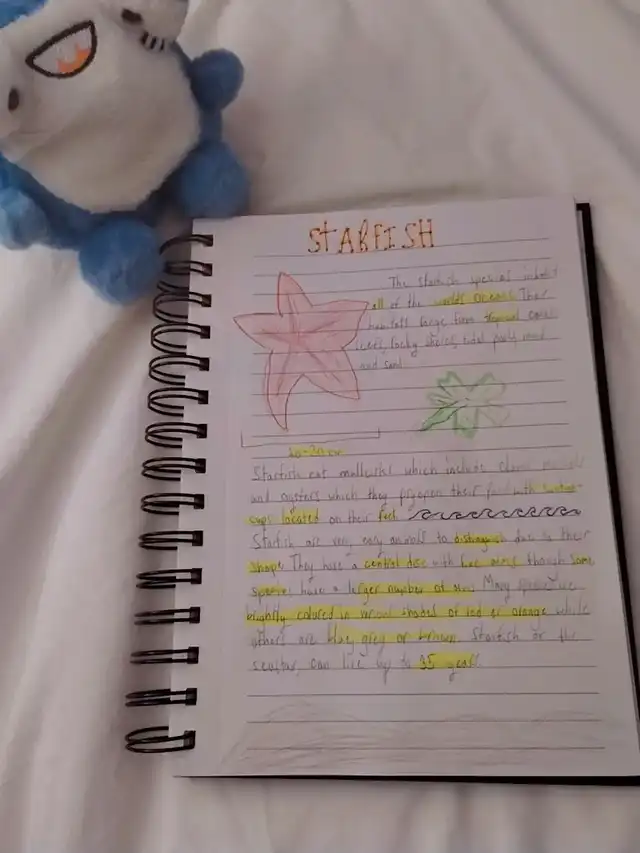 STARFISH
The starfish species inhabit
all of the worlds oceans. Their
habitats range from coral
reefs, rocky shores, tidal pools, mud
and sand
10-20 cm
Starfish eat mollusks which include clams
and oysters which they pry open their with suction
cups located on their feet
Starfish are very easy animals to distinguish due to their
shape. They have a central disc with five arms though some
species have a larger number of arms. Many species are
brightly colored in various shades of red or orange while
others are blue, grey or brown. Starfish or the
seastar, can live up to 35 years.